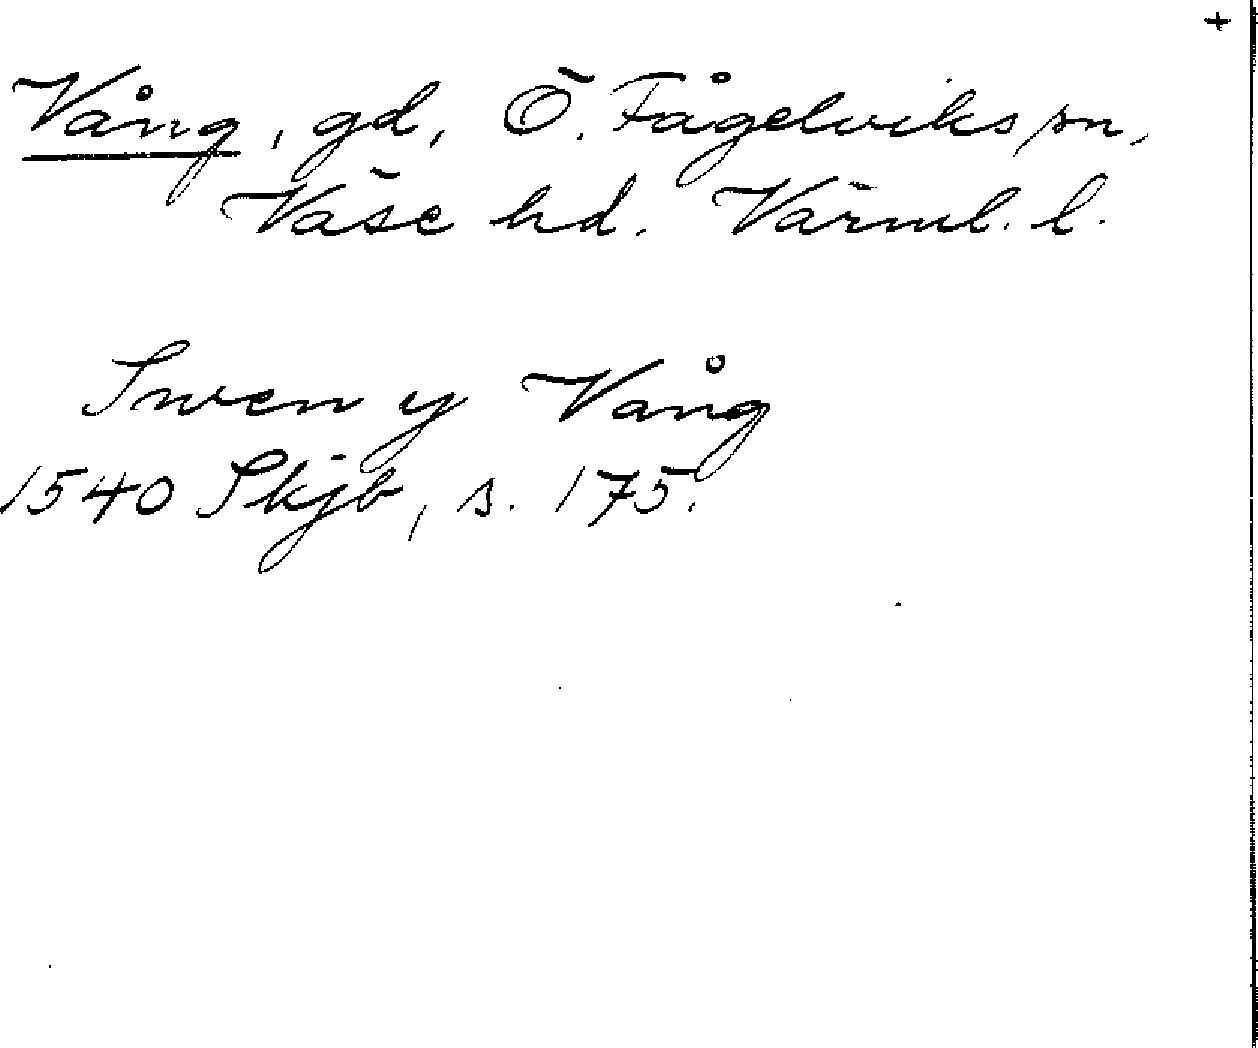 +
Vång, gd, Ö. Fågelviks sn,
Väse hd. Värml. l.
Swen y Vång
1540 Skjb, s. 175.